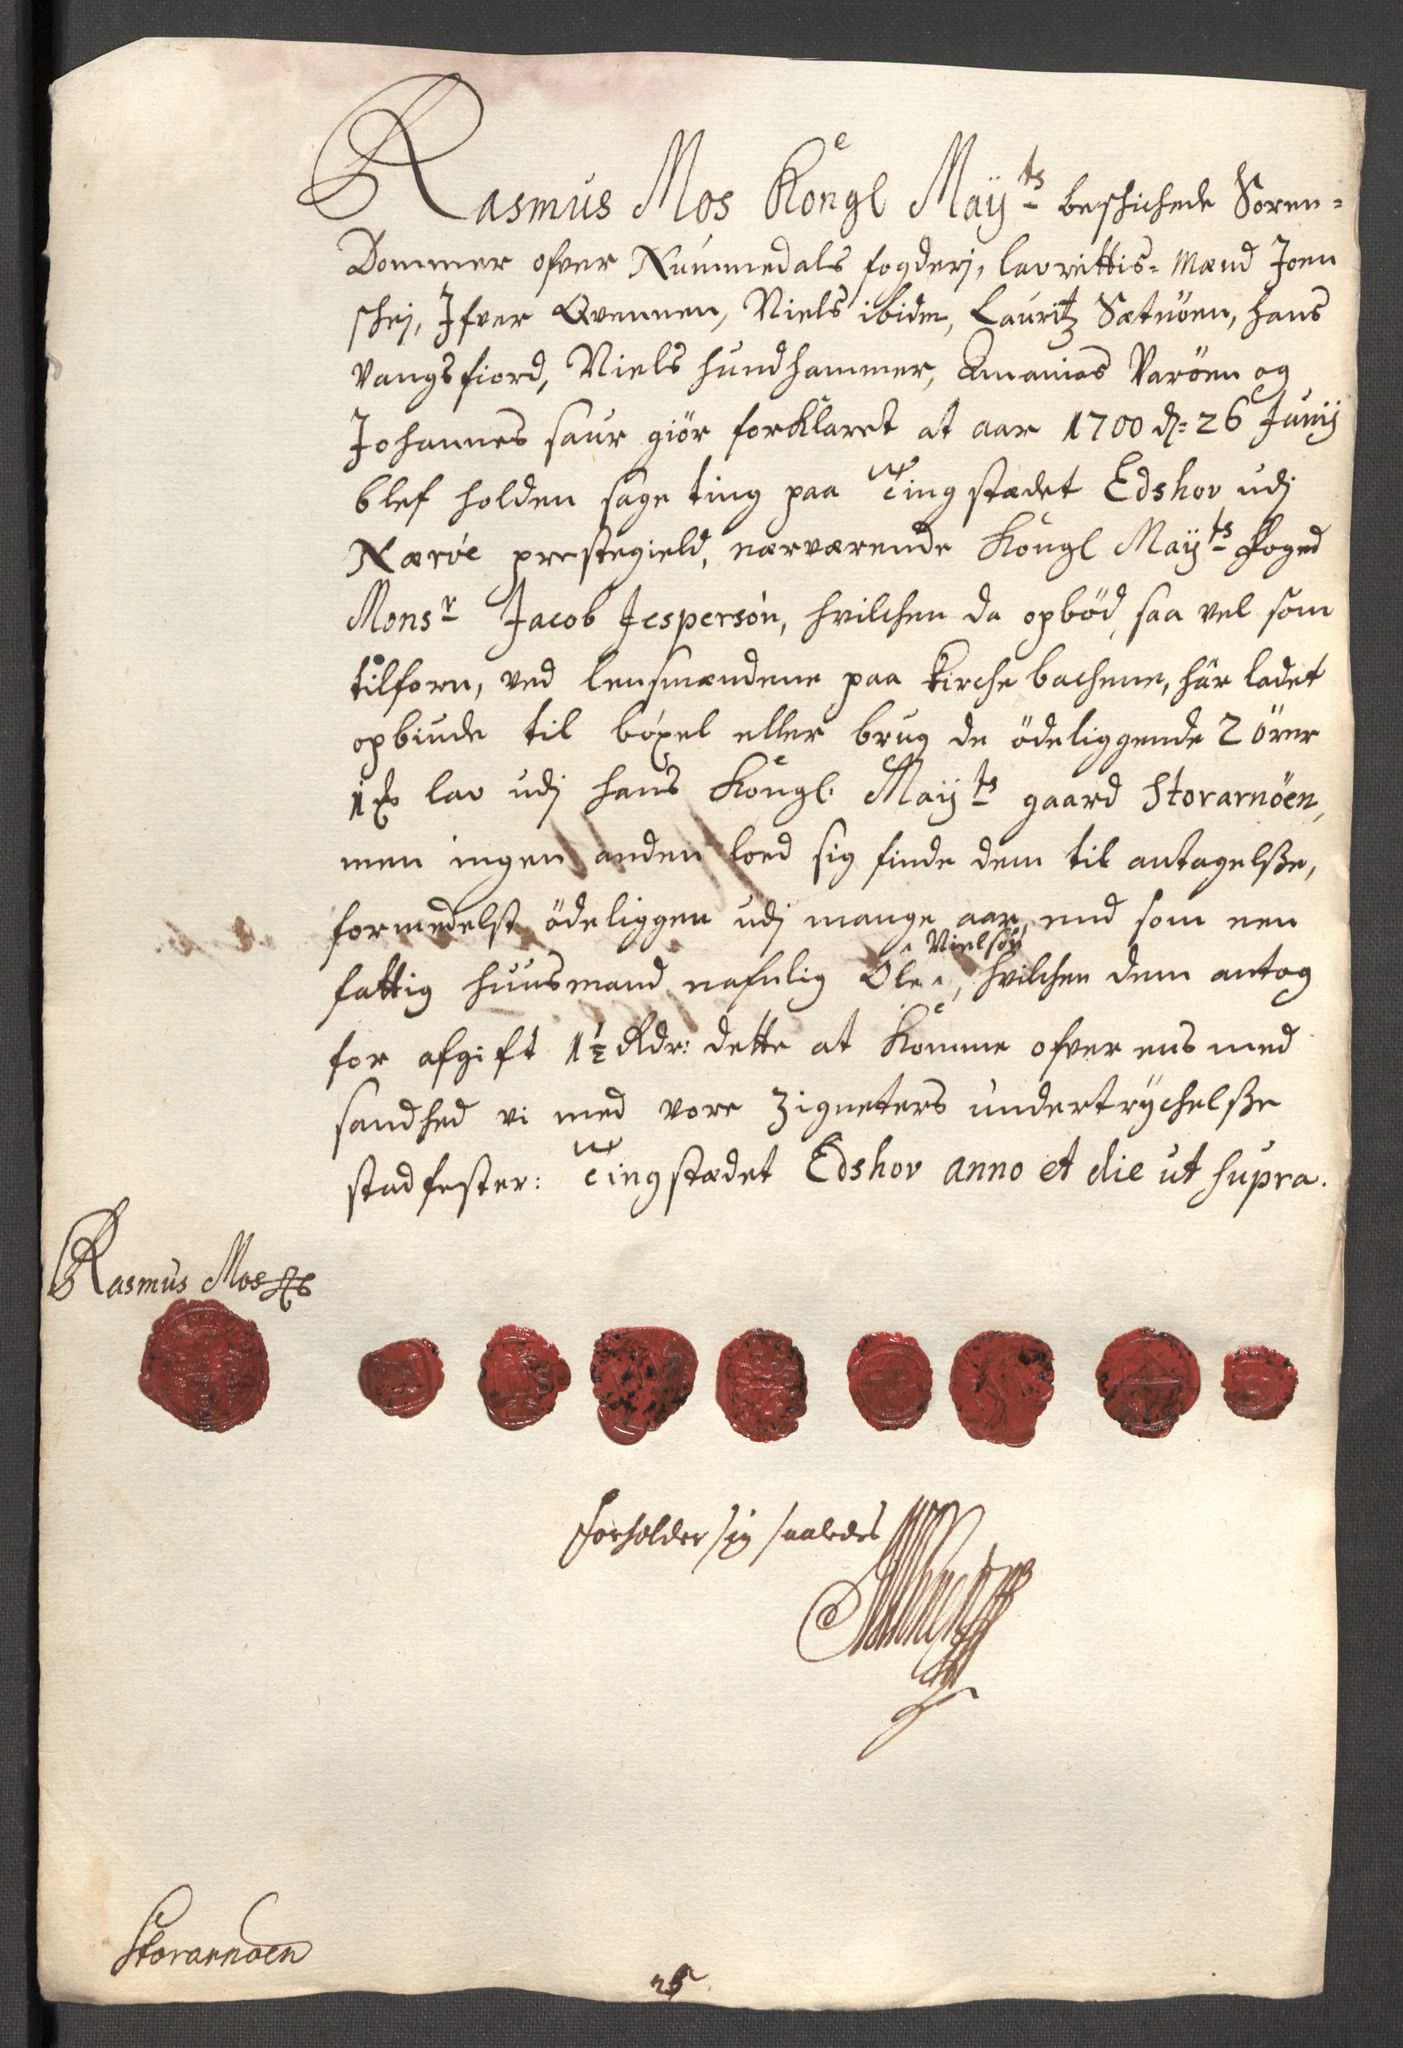 Rasmus Mos Kongl Maÿts beschichede Soren=
Dommer ofver Nummedals fogderj, lavrettis=Mænd Joen
schej, Ifver Qvennen, Niels ibidm, Lauritz Sætnöen, hans
Vangsfiord, Niels hundhammer, Ananias Varöen og
Johannes saur giör forklaret at aar 1700 d: 26 Junij
blef holden sage ting paa Tingstædet Edshov udj
Næröe prestegield, nærværende Kongl Maÿts foged
Monsr Jacob Jespersön, hvilchen da opböd, saa vel som
tilforn, ved lensmændene paa Kirche bachene, här ladet
opbiude til böxel eller brug de ödeliggende 2 örer
1 lav udj hans Kongl. Maÿts gaard Storarnöen,
men ingen anden loed sig finde dem til antagelsse,
formedelst ödeliggen udj mange aar, end som een
fattig huusmand nafnlig Ole Nielsön, hvilchen dem antog
for afgift 1½ Rdr: dette at komme ofver ens med
sandhed vi med vore Zigneters undertrÿchelsse
stadfester: Tingstædet Edshov anno et die ut supra.
Rasmus Mos
forholder sig saaledes
Storarnöen
25